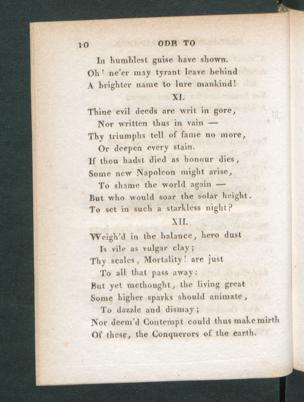 10 ODE TO
In humblest guise have shown.
Oh! ne'er may tyrant leave behind
A brighter name to lure mankind!
XI.
Thine evil deeds are writ in gore,
Nor written thus in vain —
Thy triumphs tell of fame no more,
Or deepen every stain.
If thou hadst died as honour dies,
Some new Napoleon might arise,
To shame the world again —
But who would soar the solar height.
To set in such a starkless night?
XII.
Weigh'd in the balance, hero dust
Is vile as vulgar clay;
Thy scales, Mortality! are just
To all that pass away:
But yet methought, the living great
Some higher sparks should animate,
To dazzle and dismay;
Nor deem'd Contempt could thus make mirth
Of these, the Conquerors of the earth.